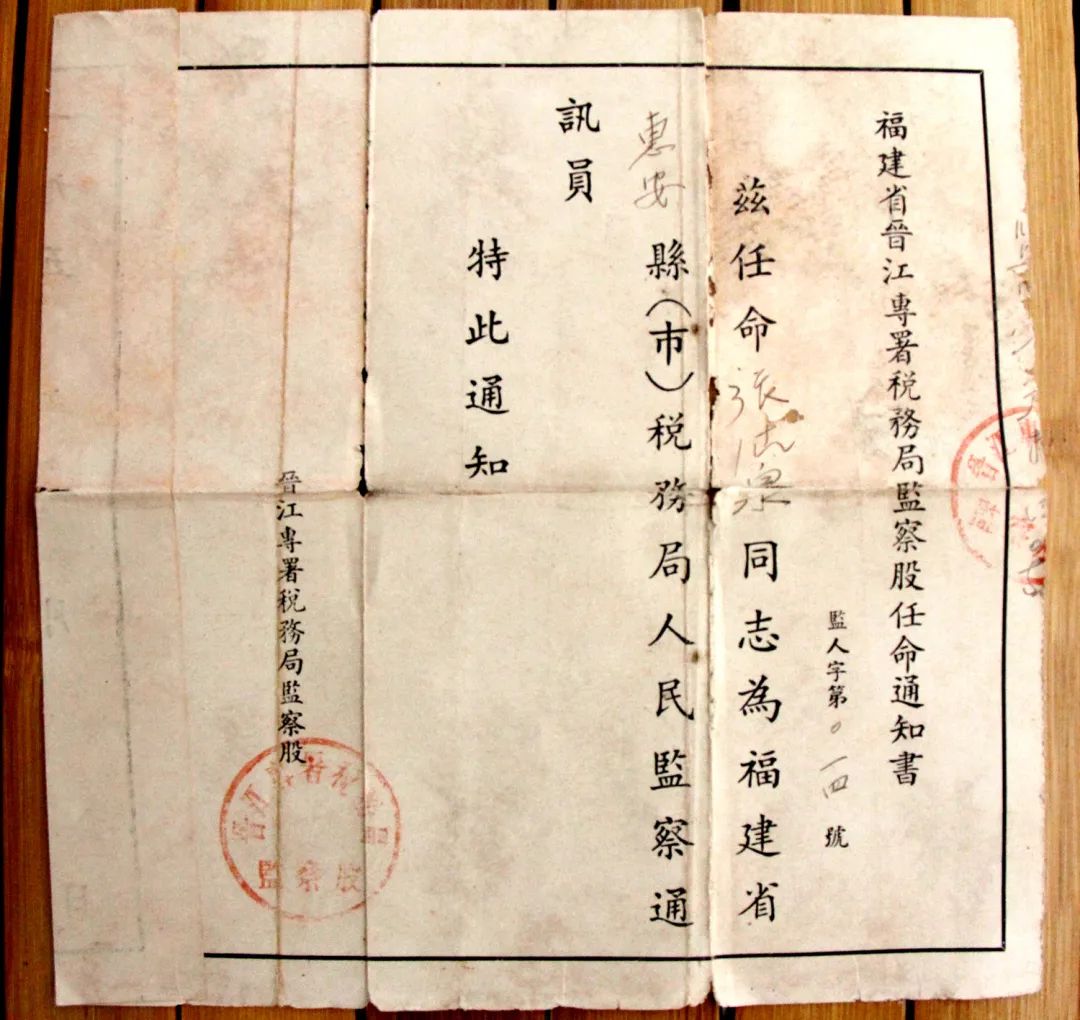 福建省晉江專署税務局監察股任命通知書
監人字第〇一四號
茲任命張志泉同志為福建省
惠安縣（市）税務局人民監察通
訊員
特此通知
晉江專署税務局監察股
晉江專署税務局
監察股